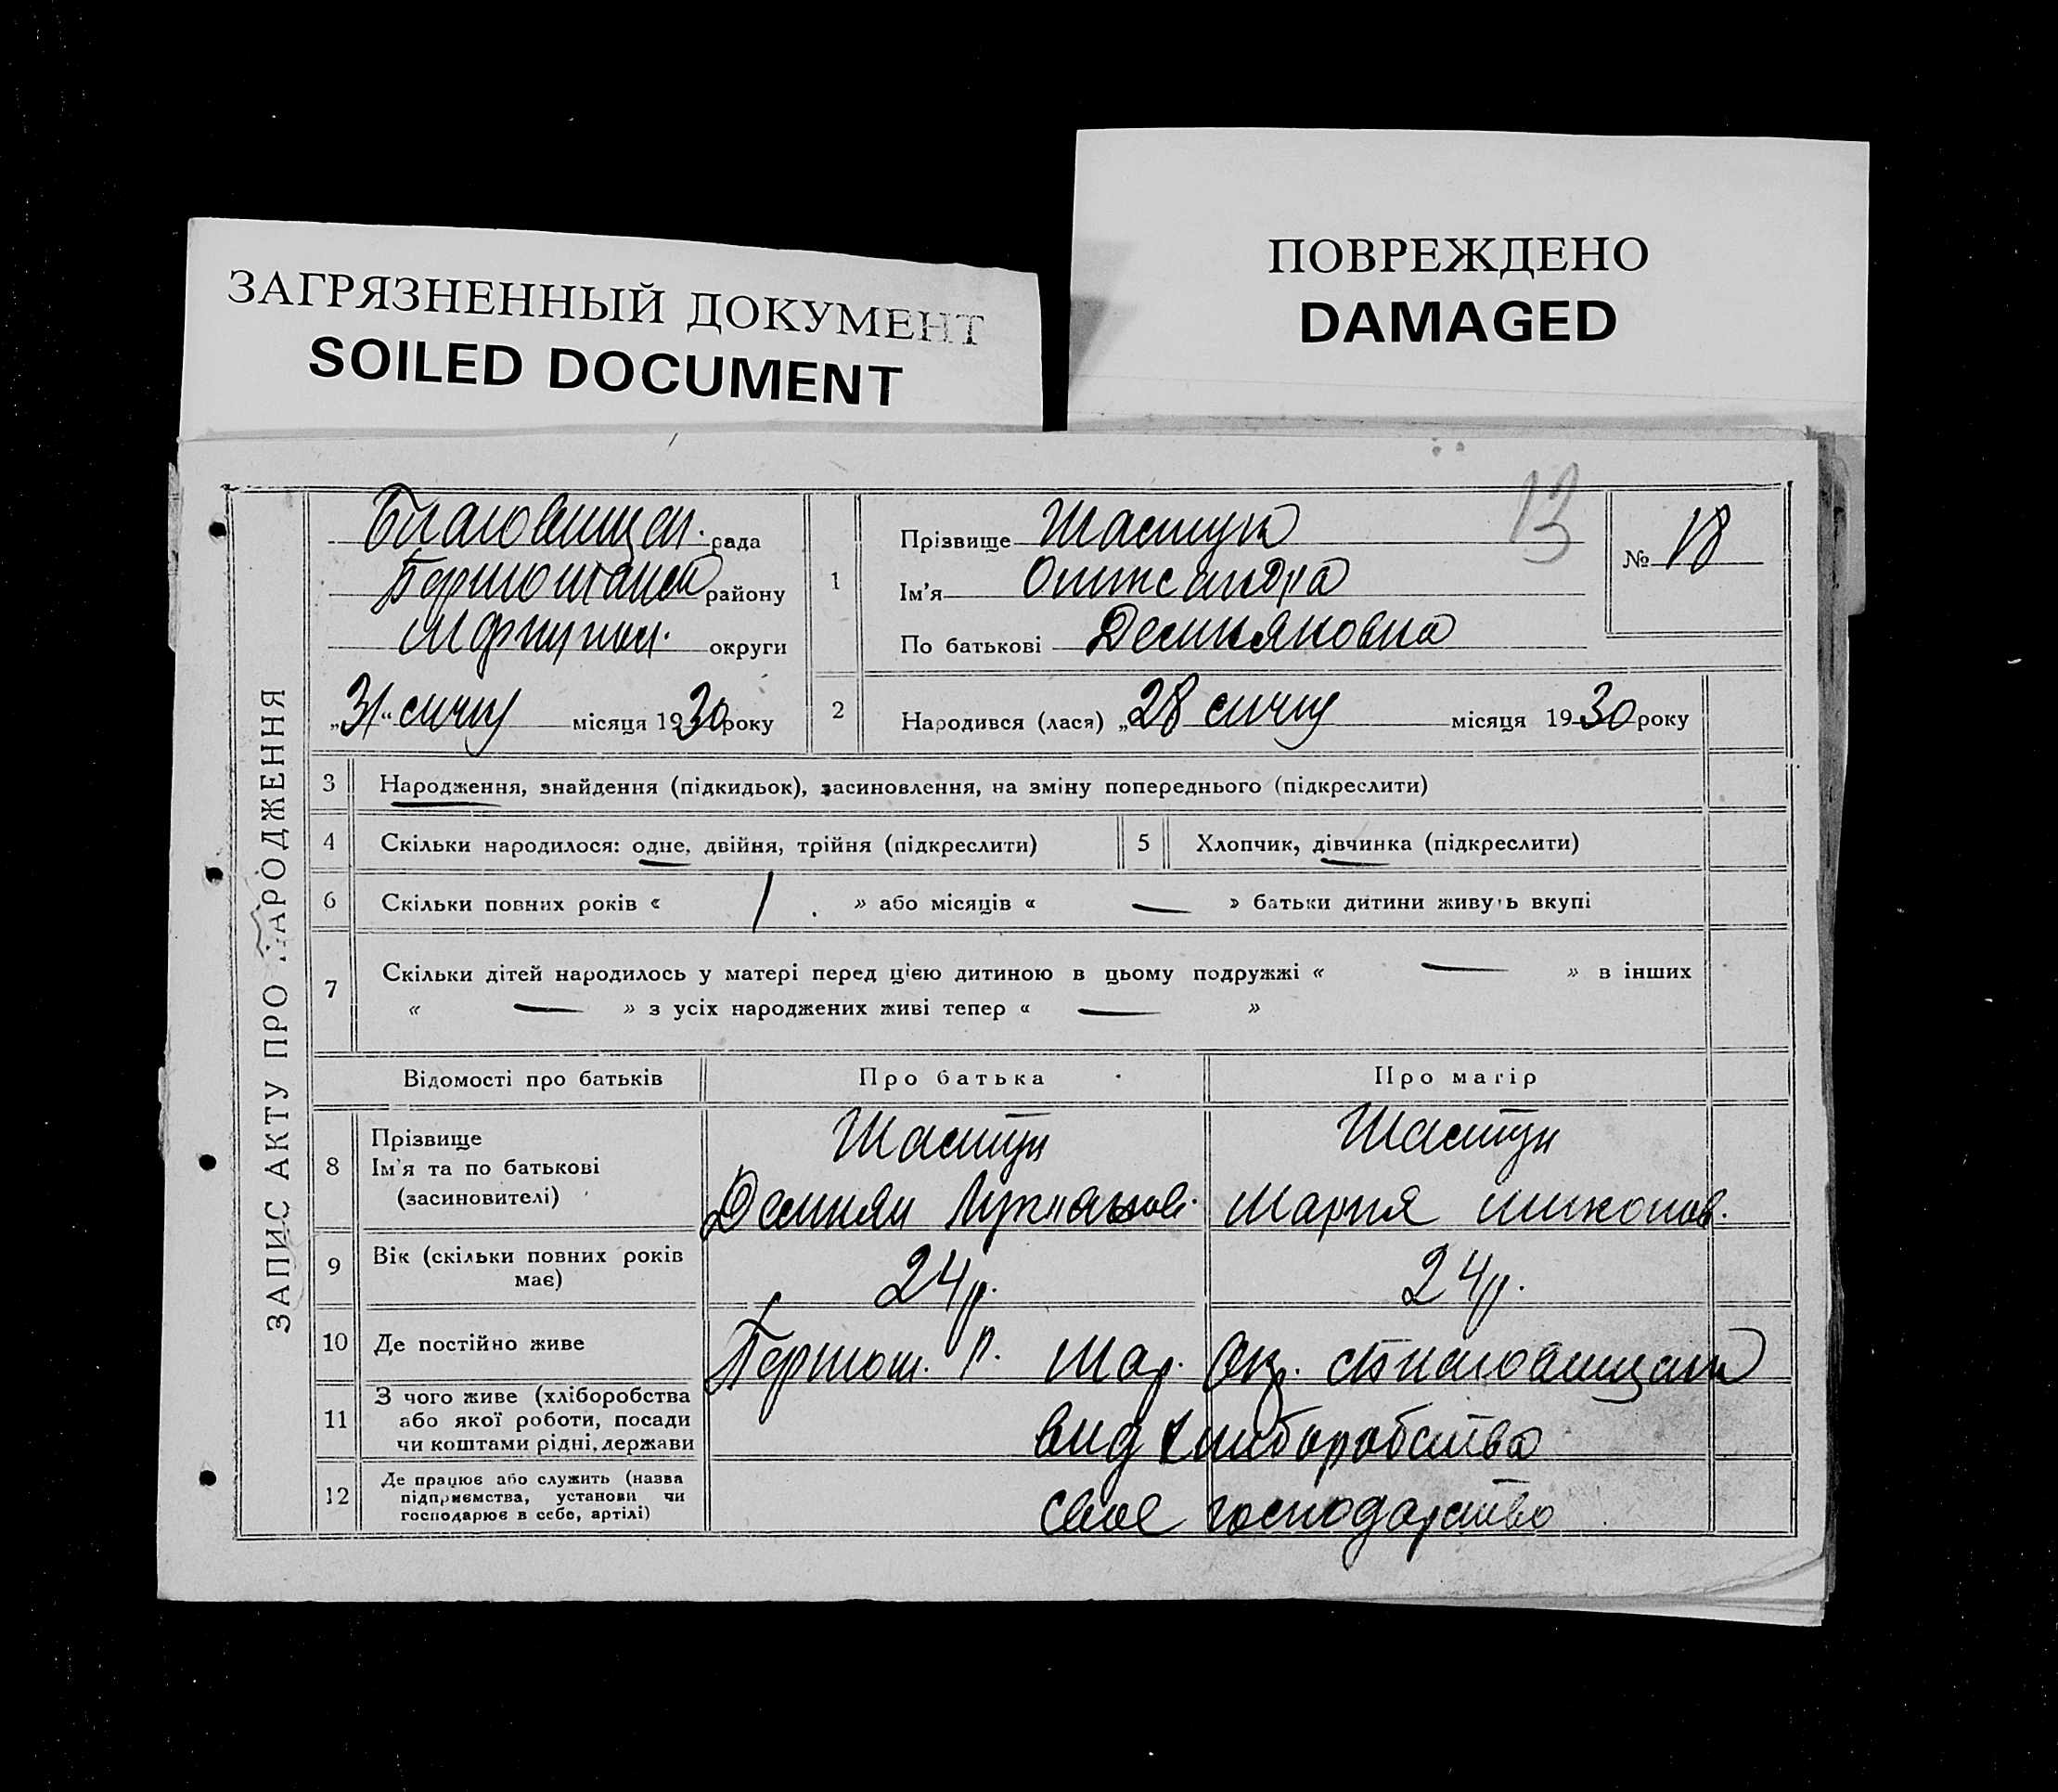 ЗАГРЯЗНЕННЫЙ ДОКУМЕНТ
SOILED DOCUMENT
ПОВРЕЖДЕНО
DAMAGED
13
ЗАПИС АКТУ ПРО НАРОДЖЕННЯ
Благовищен. рада
району
округи
„31“ сичня місяця 1930 року
1
Прізвище Шастун
Ім'я Олександра
По батькові Демяновна
№ 18
2 Народився (лася) „28 сичня місяця 1930 року
3 Народження, знайдення (підкидьок), засиновлення, на зміну попереднього (підкреслити)
4 Скільки народилося: одне, двійня, трійня (підкреслити) 5 Хлопчик, дівчинка (підкреслити)
6 Скільки повних років « 1 . » або місяців « — » батьки дитини живуть вкупі
7 Скільки дітей народилось у матері перед цією дитиною в цьому подружжі « — » в інших
« — » з усіх народжених живі тепер « — »
Відомості про батьків Про батька Про матір
8 Прізвище Шастун Шастун
Ім'я та по батькові
(засиновителі) Демиян Мария
9 Вік (скільки повних років має) 24 р. 24 р.
10 Де постійно живе р. Мар. Окр.
11 З чого живе (хліборобства
або якої роботи, посади
чи коштами рідні, держави вид хлиборобства
12 Де працює або служить (назва
підприємства, установи чи
господарює в себе, артілі) свое господарство